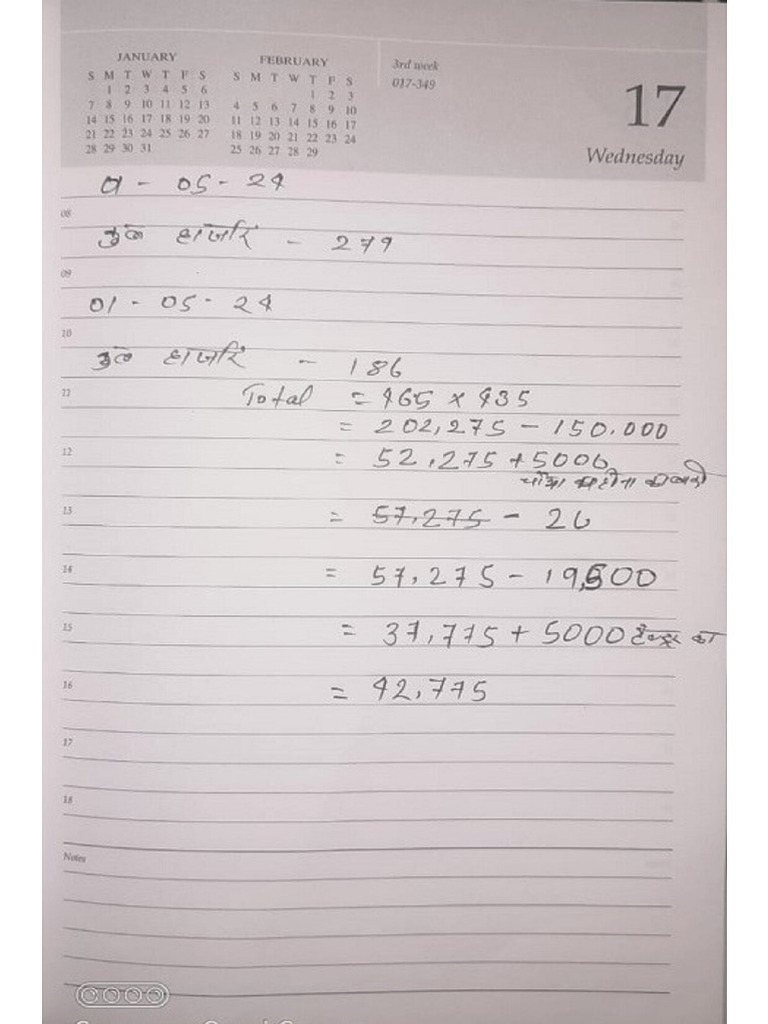 JANUARY
S M T W T F S
1 2 3 4 5 6
7 8 9 10 11 12 13
14 15 16 17 18 19 20
21 22 23 24 25 26 27
28 29 30 31
FEBRUARY
S M T W T F S
1 2 3
4 5 6 7 8 9 10
11 12 13 14 15 16 17
18 19 20 21 22 23 24
25 26 27 28 29
3rd week
017-349
17
Wednesday
01 - 05 - 24
08
कुल हाजरि - 279
09
01 - 05 - 24
10
कुल हाजरि - 186
11 Total = 465 x 435
= 202,275 - 150.000
12 = 52,275 + 5000
महीना
13 = 57,275 - 26
14 = 57,275 - 19,500
15 = 37,775 + 5000 का
16 = 42,775
17
18
Notes